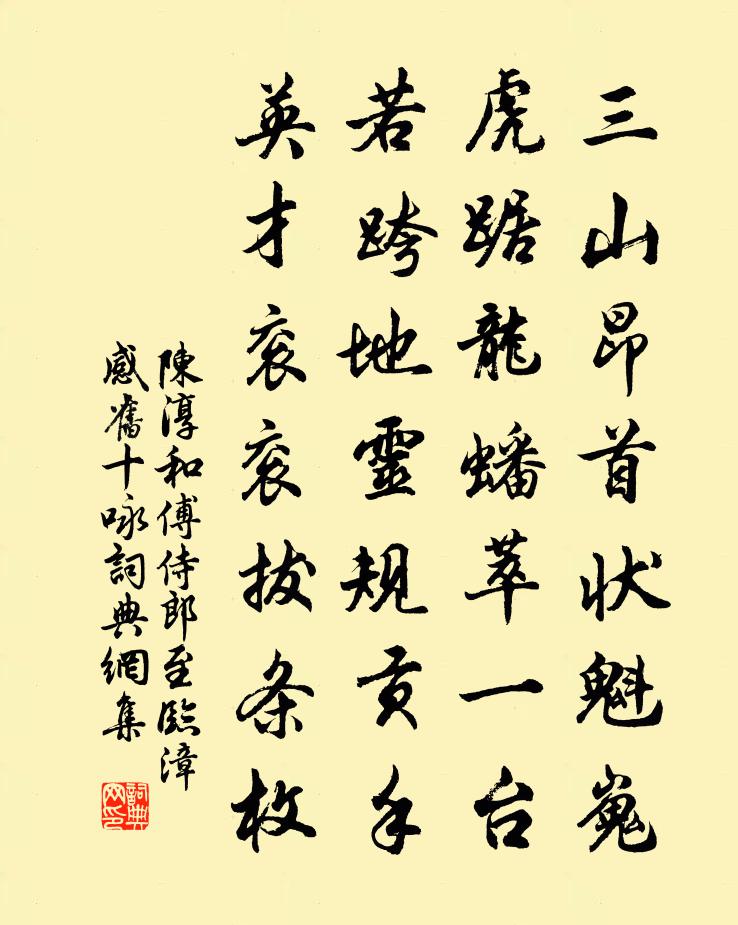 三山昂首状魁嵬
虎踞龍蟠萃一台
若跨地靈規貢手
英才衮衮拔条枚
陳淳和傅侍郎至臨漳
感舊十咏詞典網集
詞典网印